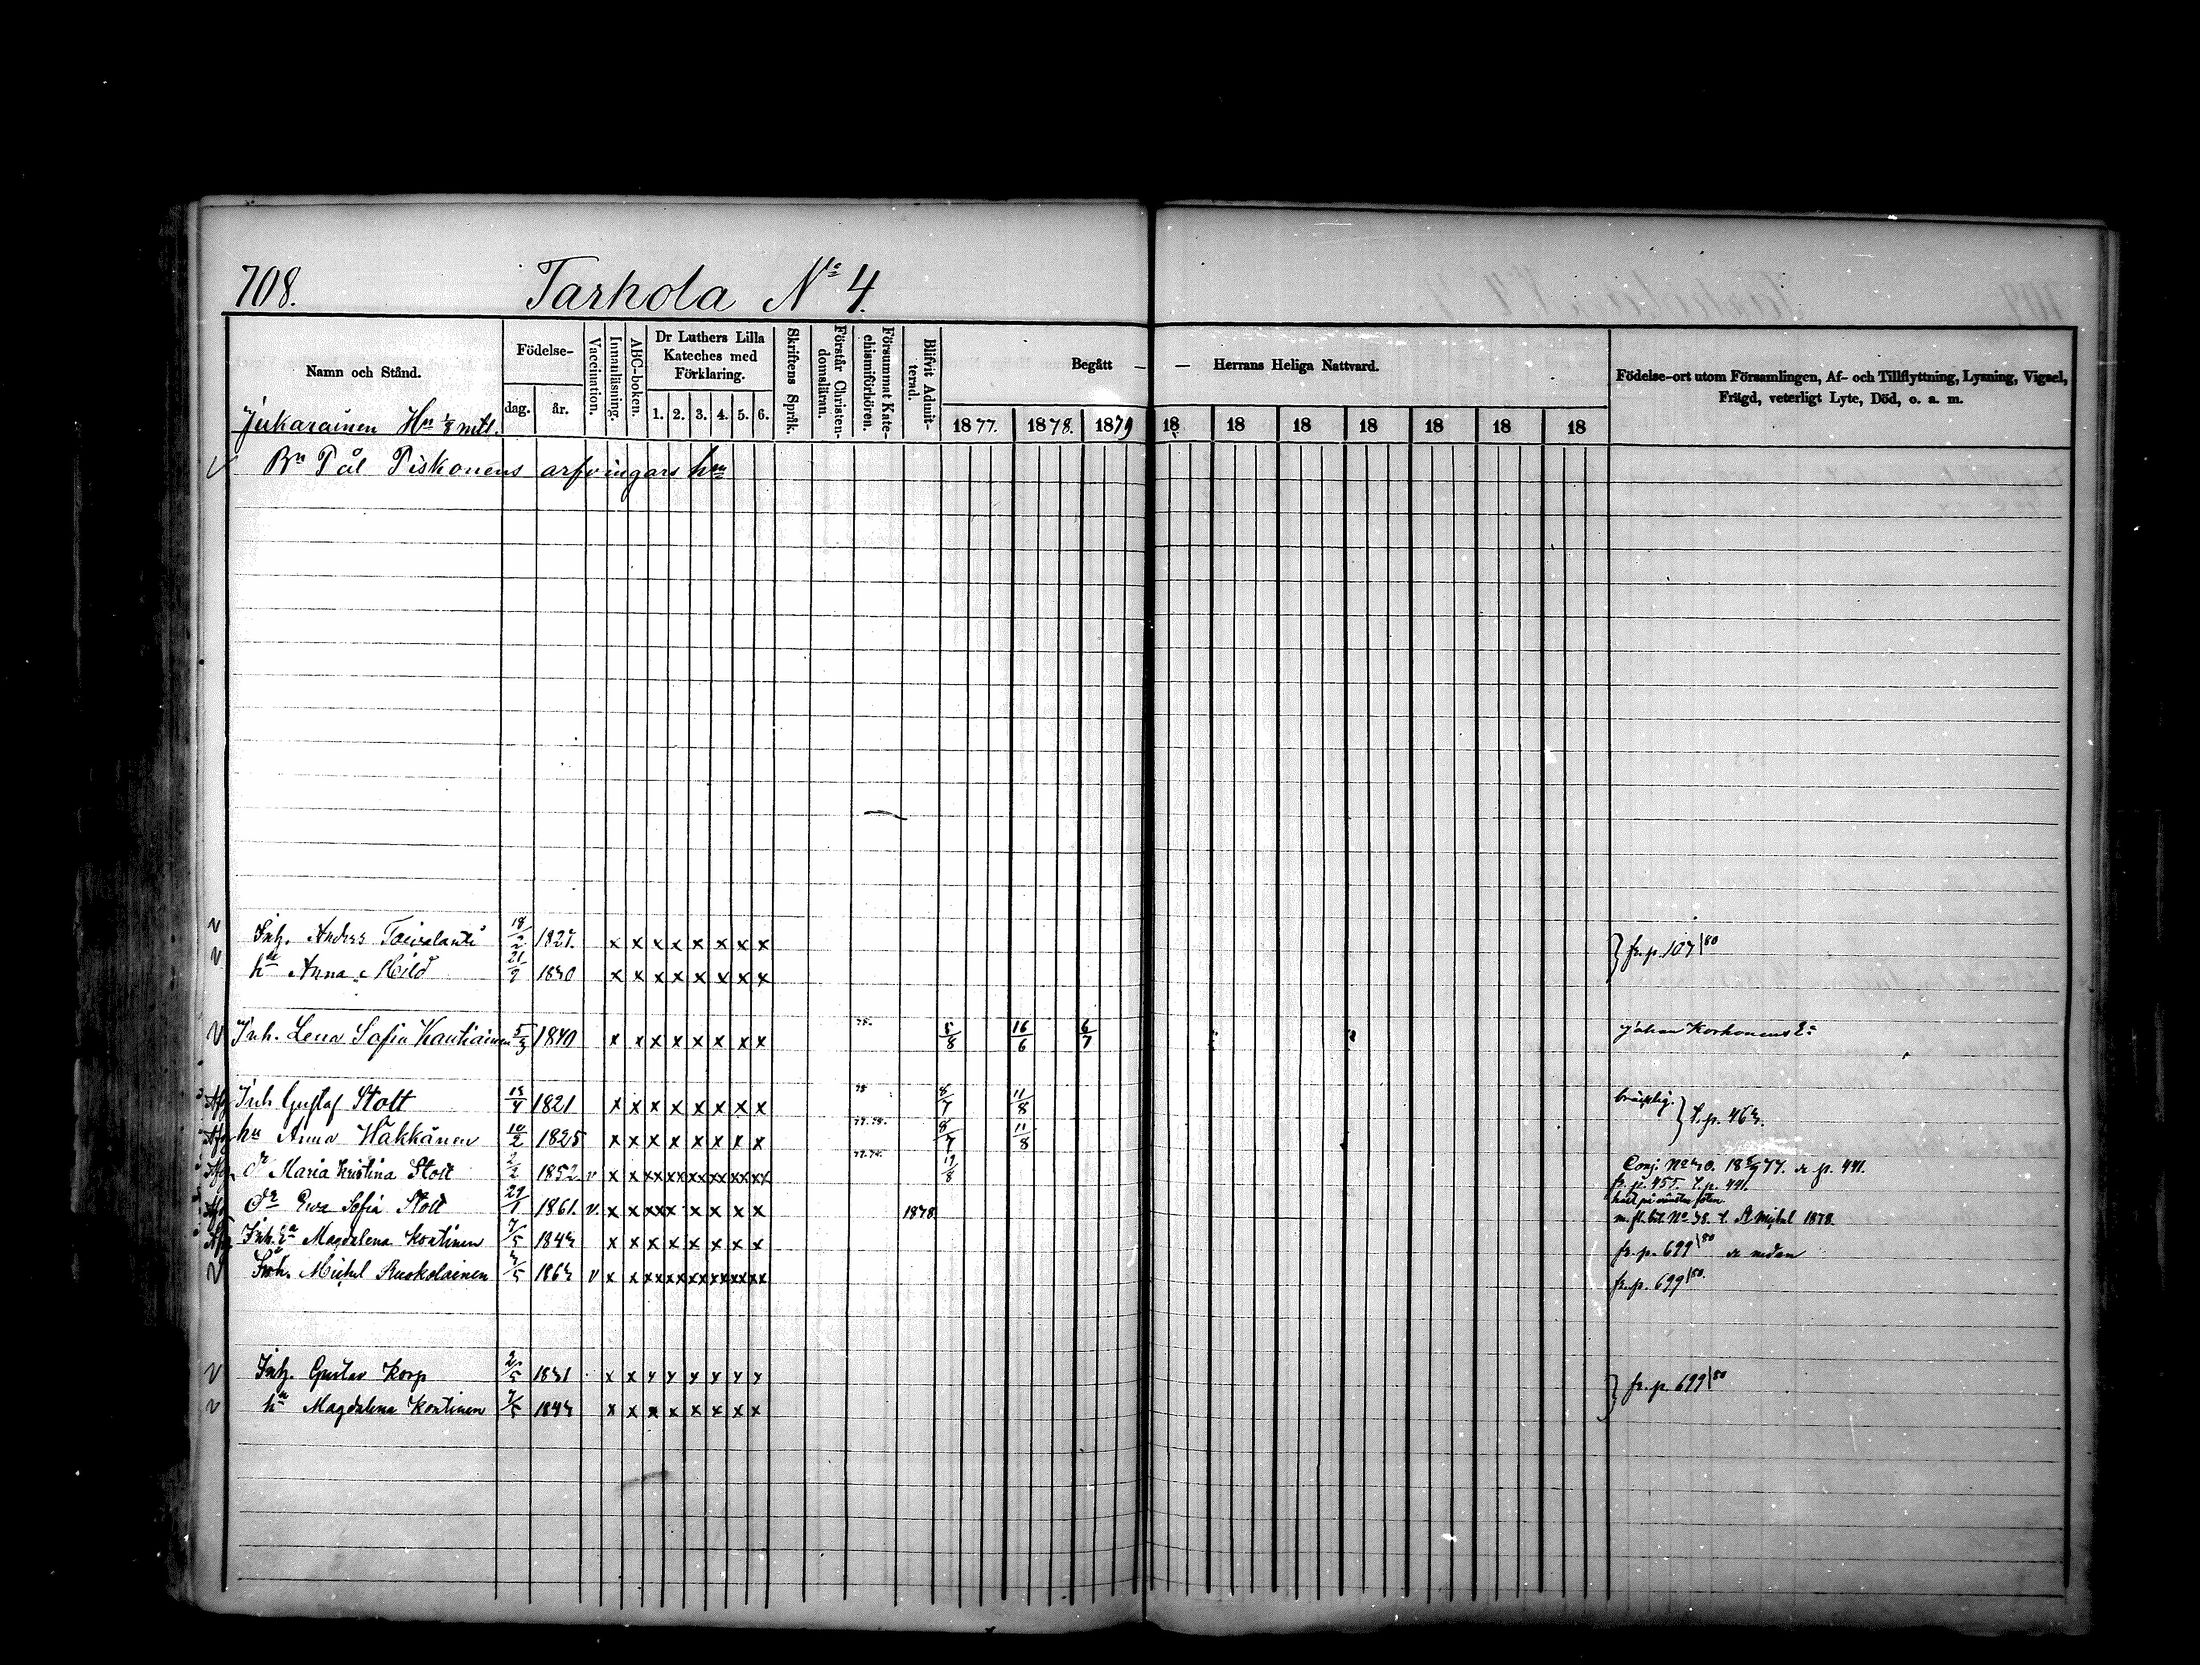 708. Tarhola No 4.
Namn och Stånd.
Födelse-
dag.
år.
Vaccination.
Innanläsning.
ABC-boken.
Dr Luthers Lilla
Kateches med
Förklaring.
1. 2. 3. 4. 5. 6.
Skriftens Språk.
Förstår Christen-
domsläran.
Försummat Kate-
chismiförhören.
Blifvit Admit-
terad.
Begått — — Herrans Heliga Nattvard.
1877. 1878. 1879 18 18 18 18 18 18 18
Födelse-ort utom Församlingen, Af- och Tillflyttning, Lysning, Vigsel,
Frägd, veterligt Lyte, Död, o. a. m.
Jukarainen Hn 1/8 mtl.
Bn Pål Piskonens arfvingars hn
Inh. Anders 18/2 1827. x x x x x x x x
hu Anna Mild 21/9 1830 x x x x x x x x } fr. p. 107/80
Inh. Lena Sofia Kautiainen 5/3 1840 x x x x x x x x 5/8 16/6 6/7 Johan Korhonens
Inh Gustaf Stolt 13/4 1821 x x x x x x x x 8/7 11/8 bräcklig.
hu Anna Hakkänen 10/2 1825 x x x x x x x x 8/7 11/8
dr Maria Kristina Stolt 2/2 1852 v x x xx xx xx xx xx xx 12/8 p. 441.
fr. p. 455. t. p. 441.
dr Ewa Sofia Stolt 29/1 1861. v. x x xx x x x x x 1878
m. fl. bet. No 38. t. St Mighel 1878.
Inh. Magdalena Kontinen 7/5 1843 x x x x x x x x fr. p. 699/80 se nedan
Inh. Michel Ruokolainen 3/5 1863 v x x xx xx xx xx xx xx fr. p. 699/80.
Inh. Gustav Korp 2/5 1831 x x x x x x x x
hu Magdalena Kontinen 7/5 1843 x x x x x x x x } fr. p. 699/80